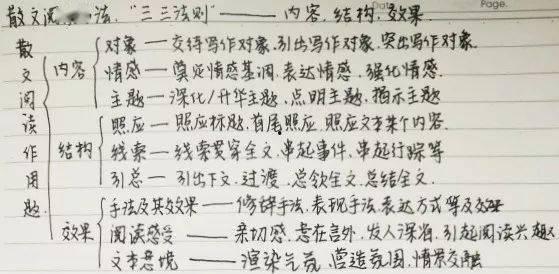 散文阅 法."三三法则"——内容.结构.效果.
散文阅读作用题
内容
对象——交待写作对象.引出写作对象.突出写作对象.
情感——奠定情感基调.表达情感.强化情感.
主题——深化/升华主题.点明主题.揭示主题
结构
照应——照应标题.首尾照应.照应文本某个内容.
线索——线索贯穿全文.串起事件.串起行踪等
引总——引出下文.过渡.总领全文.总结全文.
效果
手法及其效果——修辞手法.表现手法.表达方式等及效果
阅读感受——亲切感.意在言外.发人深省.引起阅读兴趣
文本意境——渲染气氛.营造氛围.情景交融